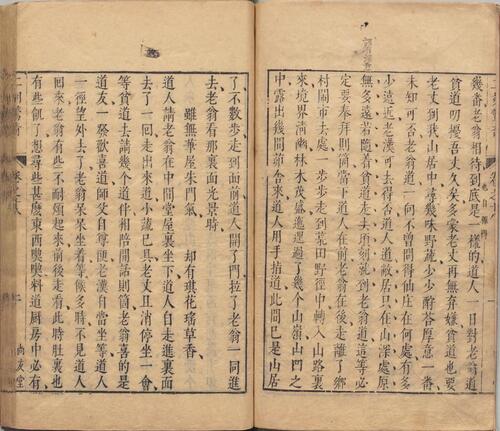 幾番老翁相待到底是一樣的道人一日對老翁道
也自難得
貧道叨擾吾丈久矣多蒙老丈再無弃嫌貧道也要
老丈到我山居中尋幾味野蔬少少酧荅厚意一番
未知可否老翁道一向不曾問得仙庄在何處有多
少遠近老漢可去得否道人道敝居只在山深處原
無多遠若隨着貧道走去頃刻就到老翁道這等必
定要奉拜則箇當下道人在前老翁在後走離了鄉
村鬧市去處一步步走到荒田野徑中轉入山路裏
來境界清幽林木茂盛迤邐過了幾个山嶺山凹之
中露出幾間茅舍來道人用手指道此間已是山居
了不數步走到面前道人開了門拉了老翁一同進
去老翁看那裏面光景時
雖無華屋朱門氣 却有琪花瑤草香
道人請老翁在中間堂屋裏坐下道人自走進裏面
去了一回走出來道小蔬已具老丈且消停坐一會
等貧道去請幾個道伴相陪閒話則箇老翁喜的是
道友一發歡喜道師父自尊便老漢自當坐等道人
一徑望外去了老翁呆呆坐着等候多時不見道人
回來老翁有些不耐煩起來前後走看此時肚裏也
有些飢了想尋些甚麽東西喫喫料道廚房中必有
尚友堂